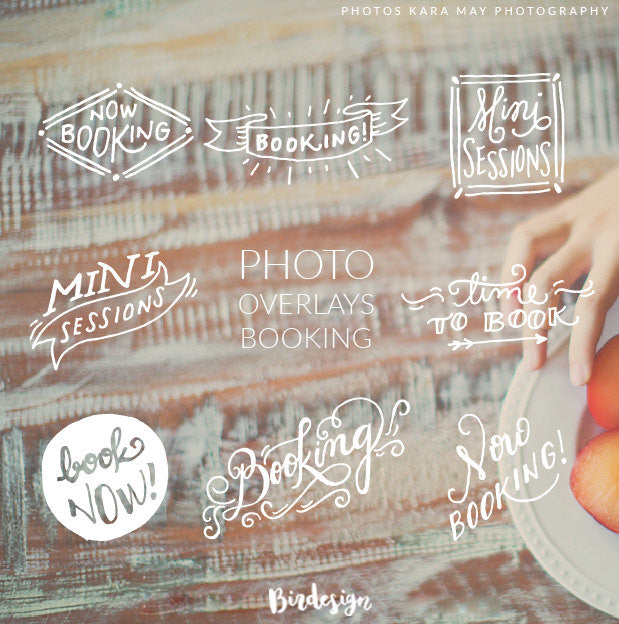 PHOTOS KARA MAY PHOTOGRAPHY
NOW
BOOKING
BOOKING!
Mini
SESSIONS
MINI
SESSIONS
PHOTO
OVERLAYS
BOOKING
time
TO BOOK
book
NOW!
Booking
Now
BOOKING!
Birdesign